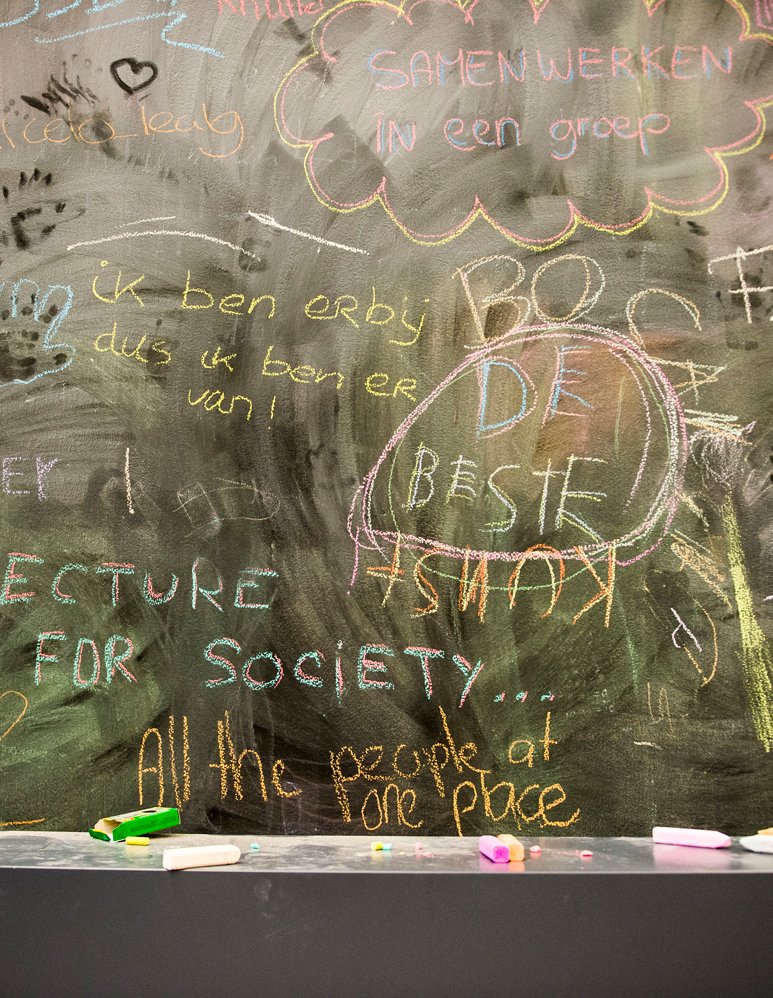 SAMENWERKEN
in een groep
ik ben erbij
dus ik ben er
van!
BOS
DE
BESTE
KUNST
ER !
ECTURE
FOR SOCIETY...
All the people at
one place